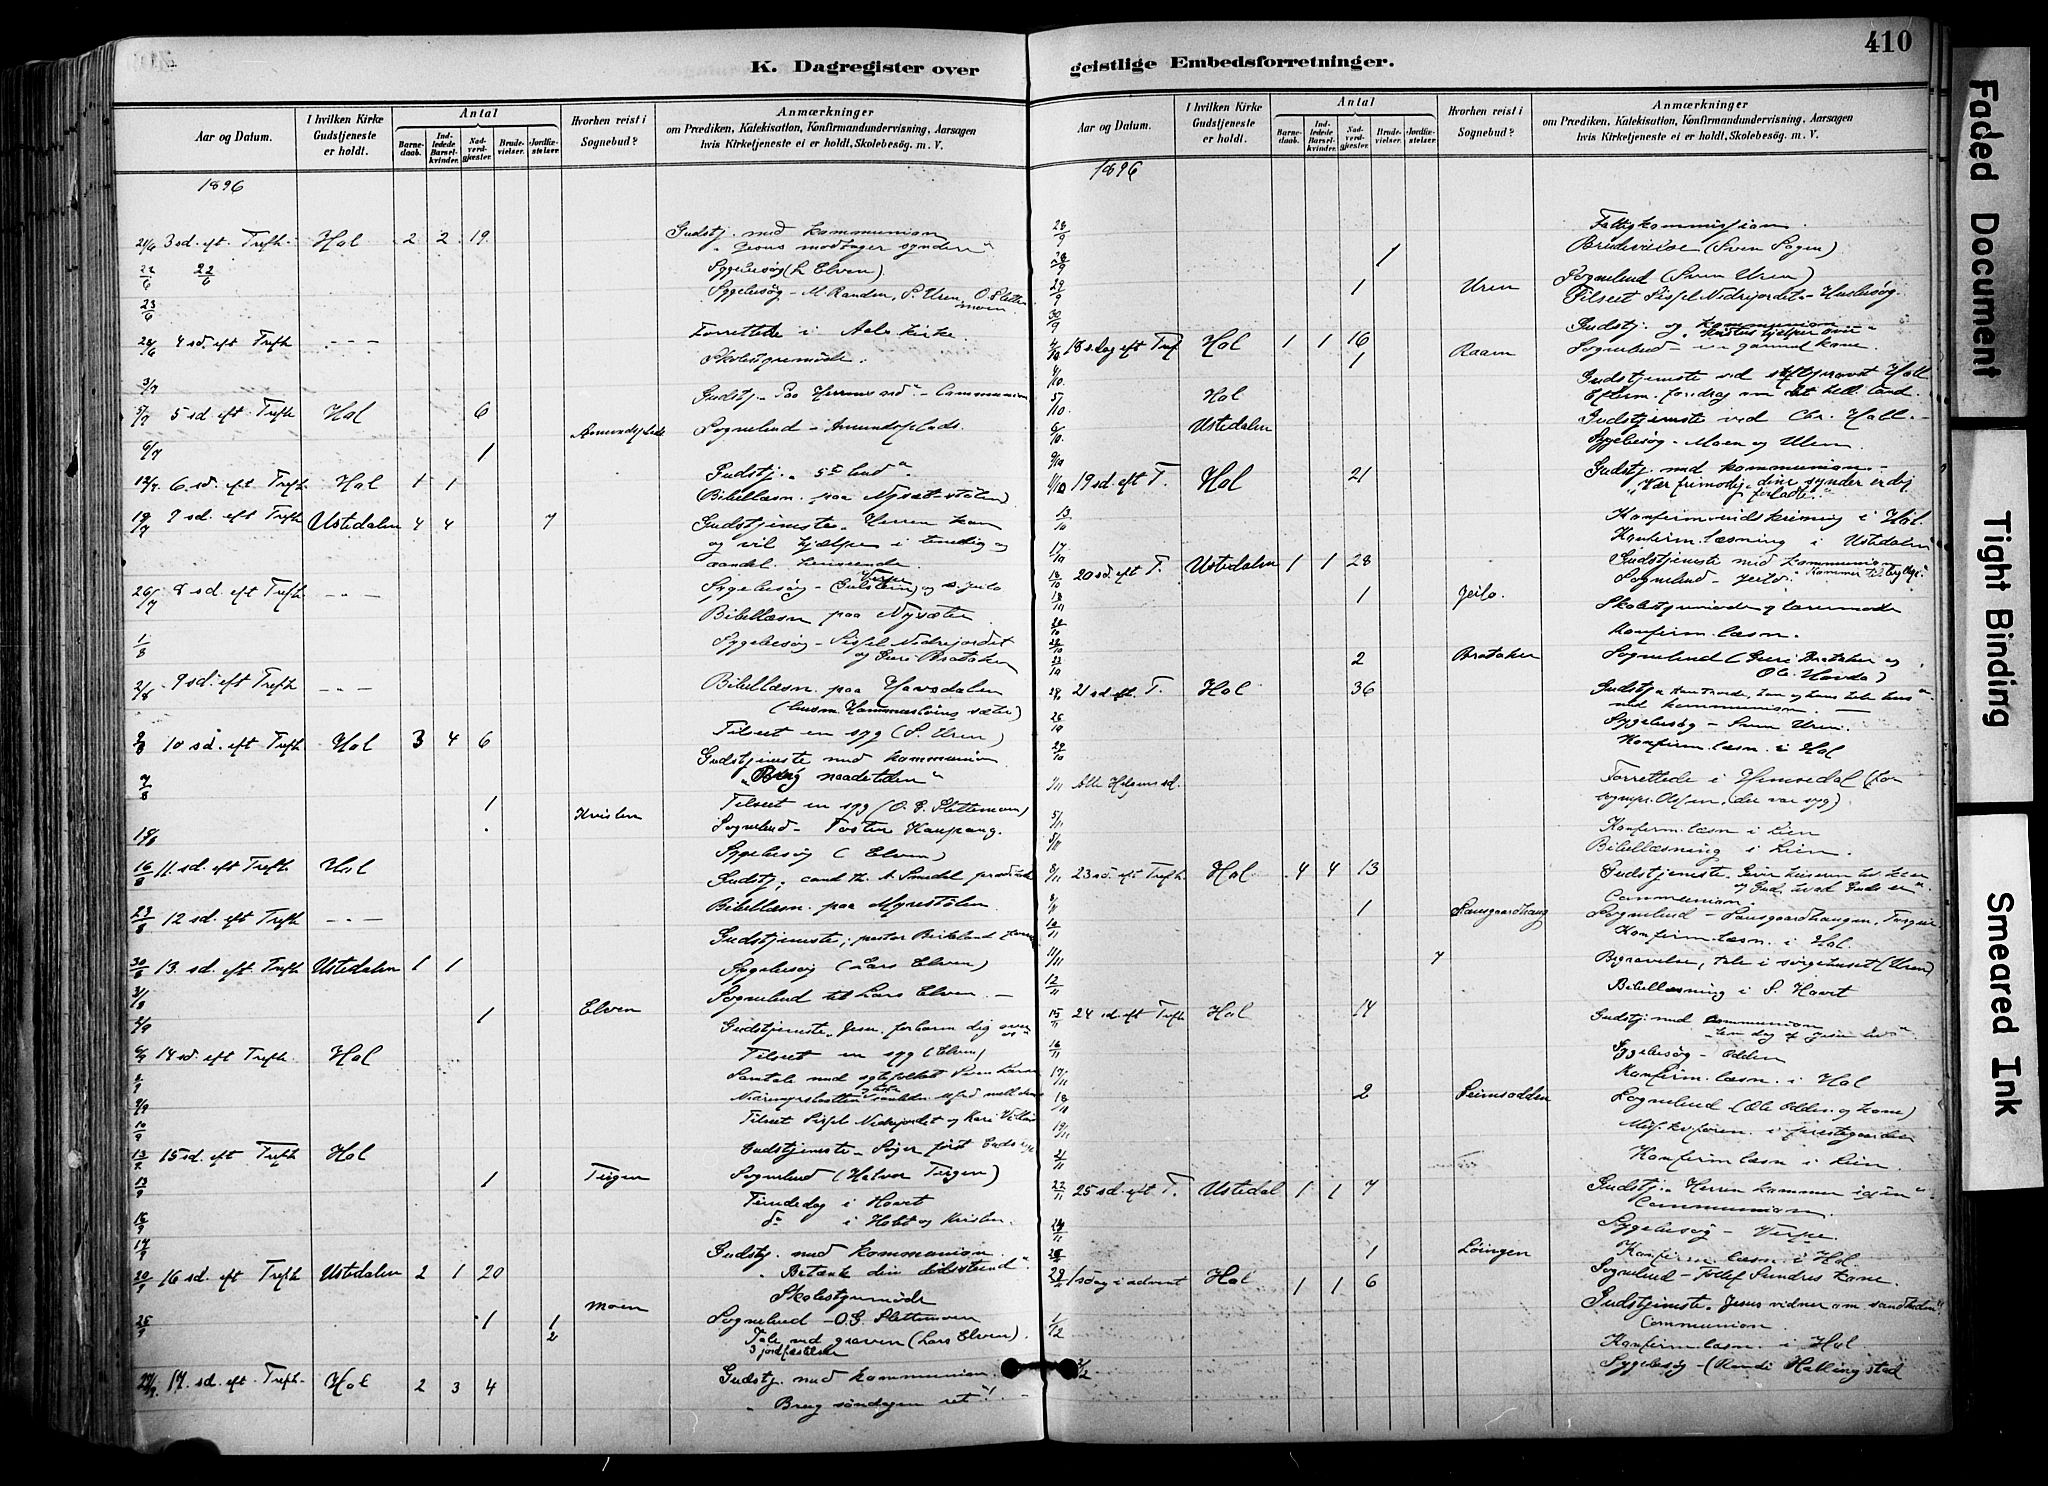 K. Dagregister over
Aar og Datum.
I hvilken Kirke Gudstjeneste er holdt.
Antal
Barnedaab.
Indledede Barselkvinder.
Nadverdgjæster.
Brudevielser.
Jordfæstelser.
Hvorhen reist i Sognebud?
Anmærkninger
om Prædiken, Katekisation, Konfirmandundervisning, Aarsagen
hvis Kirketjeneste ei er holdt, Skolebesøg. m. V.
1896
21/6 3 sd. eft. Trefh. Hol 2 2 19 Gudstj. med kommunion
"Jesus modtager syndere"
22/6 22/6 Sygebesøg (L Elven)
23/6 Sygebesøg - M. Randen, S. Uren, O. Slettemoen
28/6 4 sd. eft Trefh - - - Forrettede i Aals kirke.
Skolestyremøde.
3/7
5/7 5 sd eft Trefh Hol 6 Gudstj. "Paa Herrens ord" - Communion
6/7 1 Amundsplads Sognebud - Amundsplads.
12/7 6 sd. eft Trefh Hol 1 1 Gudstj. "5te bud"
Bibellæsn. paa
19/7 7 sd. eft Trefh Ustedalen 4 4 7 Gudstjeneste. Herren kan
og vil hjælpe i timelig og
aandel. henseende.
26/7 8 sd. eft Trefh - - - Sygebesøg - Verpe og Jeilo
Bibellæsn. paa Nysæter
1/8 Sygebesøg - Sissel Nedrejordet
og Guri Brataker
2/8 9 sd. eft Trefh - - - Bibellæsn. paa Havsdalen
9/8 10 sd. eft Trefh Hol 3 4 6 Tilseet en syg (S. Uren)
Gudstjeneste med kommunion
"Brug naadetiden"
1 Tilseet en syg (O. G. Slettemoen)
Kvislen Sognebud - Tosten Haupang.
Sygebesøg (Elven)
16/8 11. sd. eft Trefh Hol Gudstj; cand. th. A. Smedal
Bibellæsn. paa Myrestølen
23/8 12 sd. eft Trefh - - -
Gudstjeneste; pastor Birkeland
30/8 13. sd. eft Trefh Ustedalen 1 1 Sygebesøg (Lars Elven)
1 Elven Sognebud til Lars Elven. -
Gudstjeneste. Jesu, forbarm dig over os"
6/9 14 sd. eft Trefh. Hol Tilseet en syg (Elven)
Samtale med egtefolket
Tilseet Sissel Nedrejordet og Kari
13/9 15 sd. eft Trefh Hol Gudstjeneste - Søger først Guds rige
13/9 1 Tufgen Sognebud (Halvor
Tiendedag i Hovet
do i Holet og Kvislen.
17/9 Gudstj. med kommunion.
20/9 16 sd. eft Trefh Ustedalen 2 1 20 "Betænk din dødsstund"
Skolestyremøde
25/9 1 1 Moen Sognebud - O. G. Slettemoen
2 Tale ved graven (Lars Elven).
3 jordfæstelse
27/9 17. sd. eft. Trefh. Hol 2 3 4 Gudstj. med kommunion.
"Brug søndagen ret"!
geistlige Embedsforretninger.
410
Aar og Datum.
I hvilken Kirke Gudstjeneste er holdt.
Antal
Barnedaab.
Indledede Barselkvinder.
Nadverdgjæster.
Brudevielser.
Jordfæstelser.
Hvorhen reist i Sognebud?
Anmærkninger
om Prædiken, Katekisation, Konfirmandundervisning, Aarsagen
hvis Kirketjeneste ei er holdt, Skolebesøg. m. V.
1896
28/9 Fattigkommission.
28/9 1 Brudevielse (Sven
29/9 1 Uren Sognebud (Sven Uren)
30/9 Tilseet Sissel Nedrejordet - Husbesøg.
4/10 18 sdag eft Tref Hol 1 1 16 Gudstj. og kommunion
4/10 1 Raaen Sognebud - en gammel kone
5/10 Hol Gudstjeneste ved stiftsprovst Hall
Efterm. foredrag om det hell. land.
6/10 Ustedalen Gudstjeneste ved Chr. Hall. -
9/10 Sygebesøg - Moen og Uren
11/10 19 sd. eft T. Hol 21 Gudstj. med kommunion. -
"Vær frimodig, dine synder er dig forladte"
13/10 Konfirmindskrivning i Hol.
17/10 Konfirm. læsning i Ustedalen
18/10 20 sd. eft T. Ustedalen 1 1 28 Gudstjeneste med kommunion
18/10 1 Jeilo. Sognebud - Jeilo.
Skolestyremøde og læremøde
22/10 Konfirm. læsn.
23/10 2 Brataker Sognebud (Guri Brataker og
Ole Hovda)
21 sd. eft. T. Hol 36 Gudstj. "Han troede, han og hans hele hus"
med kommunion. -
26/10 Sygebesøg - Sven Uren.
29/10 Konfirm. læsn. i Hol
1/11 Alle Helgens sd. Forrettede i Hemsedal (for
sognepr. Olsen, der var syg)
5/11 Konfirm. læsn i Lien
5/11 Bibellæsning i Lien.
8/11 23 sd. eft Trefh. Hol 4 4 13 Gudstjeneste. Giver keiseren
og Gud hvad Guds er"
Communion.
1 Sansgaardhaug Sognebud - Sansgaardhaugen,
10/11 Konfirm. læsn. i Hol.
11/11 7 Begravelse, tale i sørgehuset (Uren)
12/11 Bibellæsning i S. Hovet
15/11 24 sd. eft Trefh Hol 14 Gudstj. med communion
"En dag af Jesu liv"
16/11 Sygebesøg - Odden
17/11 Konfirm. læsn. i Hol
18/11 2 Seimsodden Sognebud (Ole Odden og kone)
19/11 i prestegaarden
21/11 Konfirm læsn i Lien.
22/11 25 sd. eft T. Ustedal 1 1 7 Gudstj. "Herren kommer igjen"
Communion.
Sygebesøg - Verpe.
1 Løingen Konfirm. læsn. i Hol.
Sognebud - Tollef Sundres kone.
29/11 1 sdag i advent Hol 1 1 6
Gudstjeneste. Jesus vidner om sandheden"
Communion.
1/12 Konfirm. læsn. i Hol
2/12 Sygebesøg - (Randi Hallingstad
Faded Document
Tight Binding
Smeared Ink